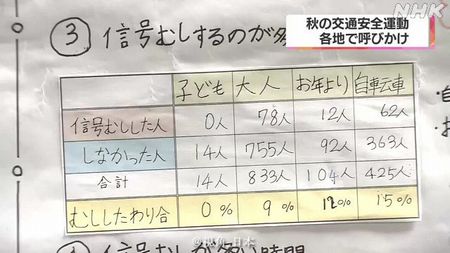 NHK
秋の交通安全運動
各地で呼びかけ
③信号むしするのが多
子ども 大人 お年より 自転車
信号むしした人 0人 78人 12人 62人
しなかった人 14人 755人 92人 363人
合計 14人 833人 104人 425人
むししたわり合 0% 9% 12% 15%